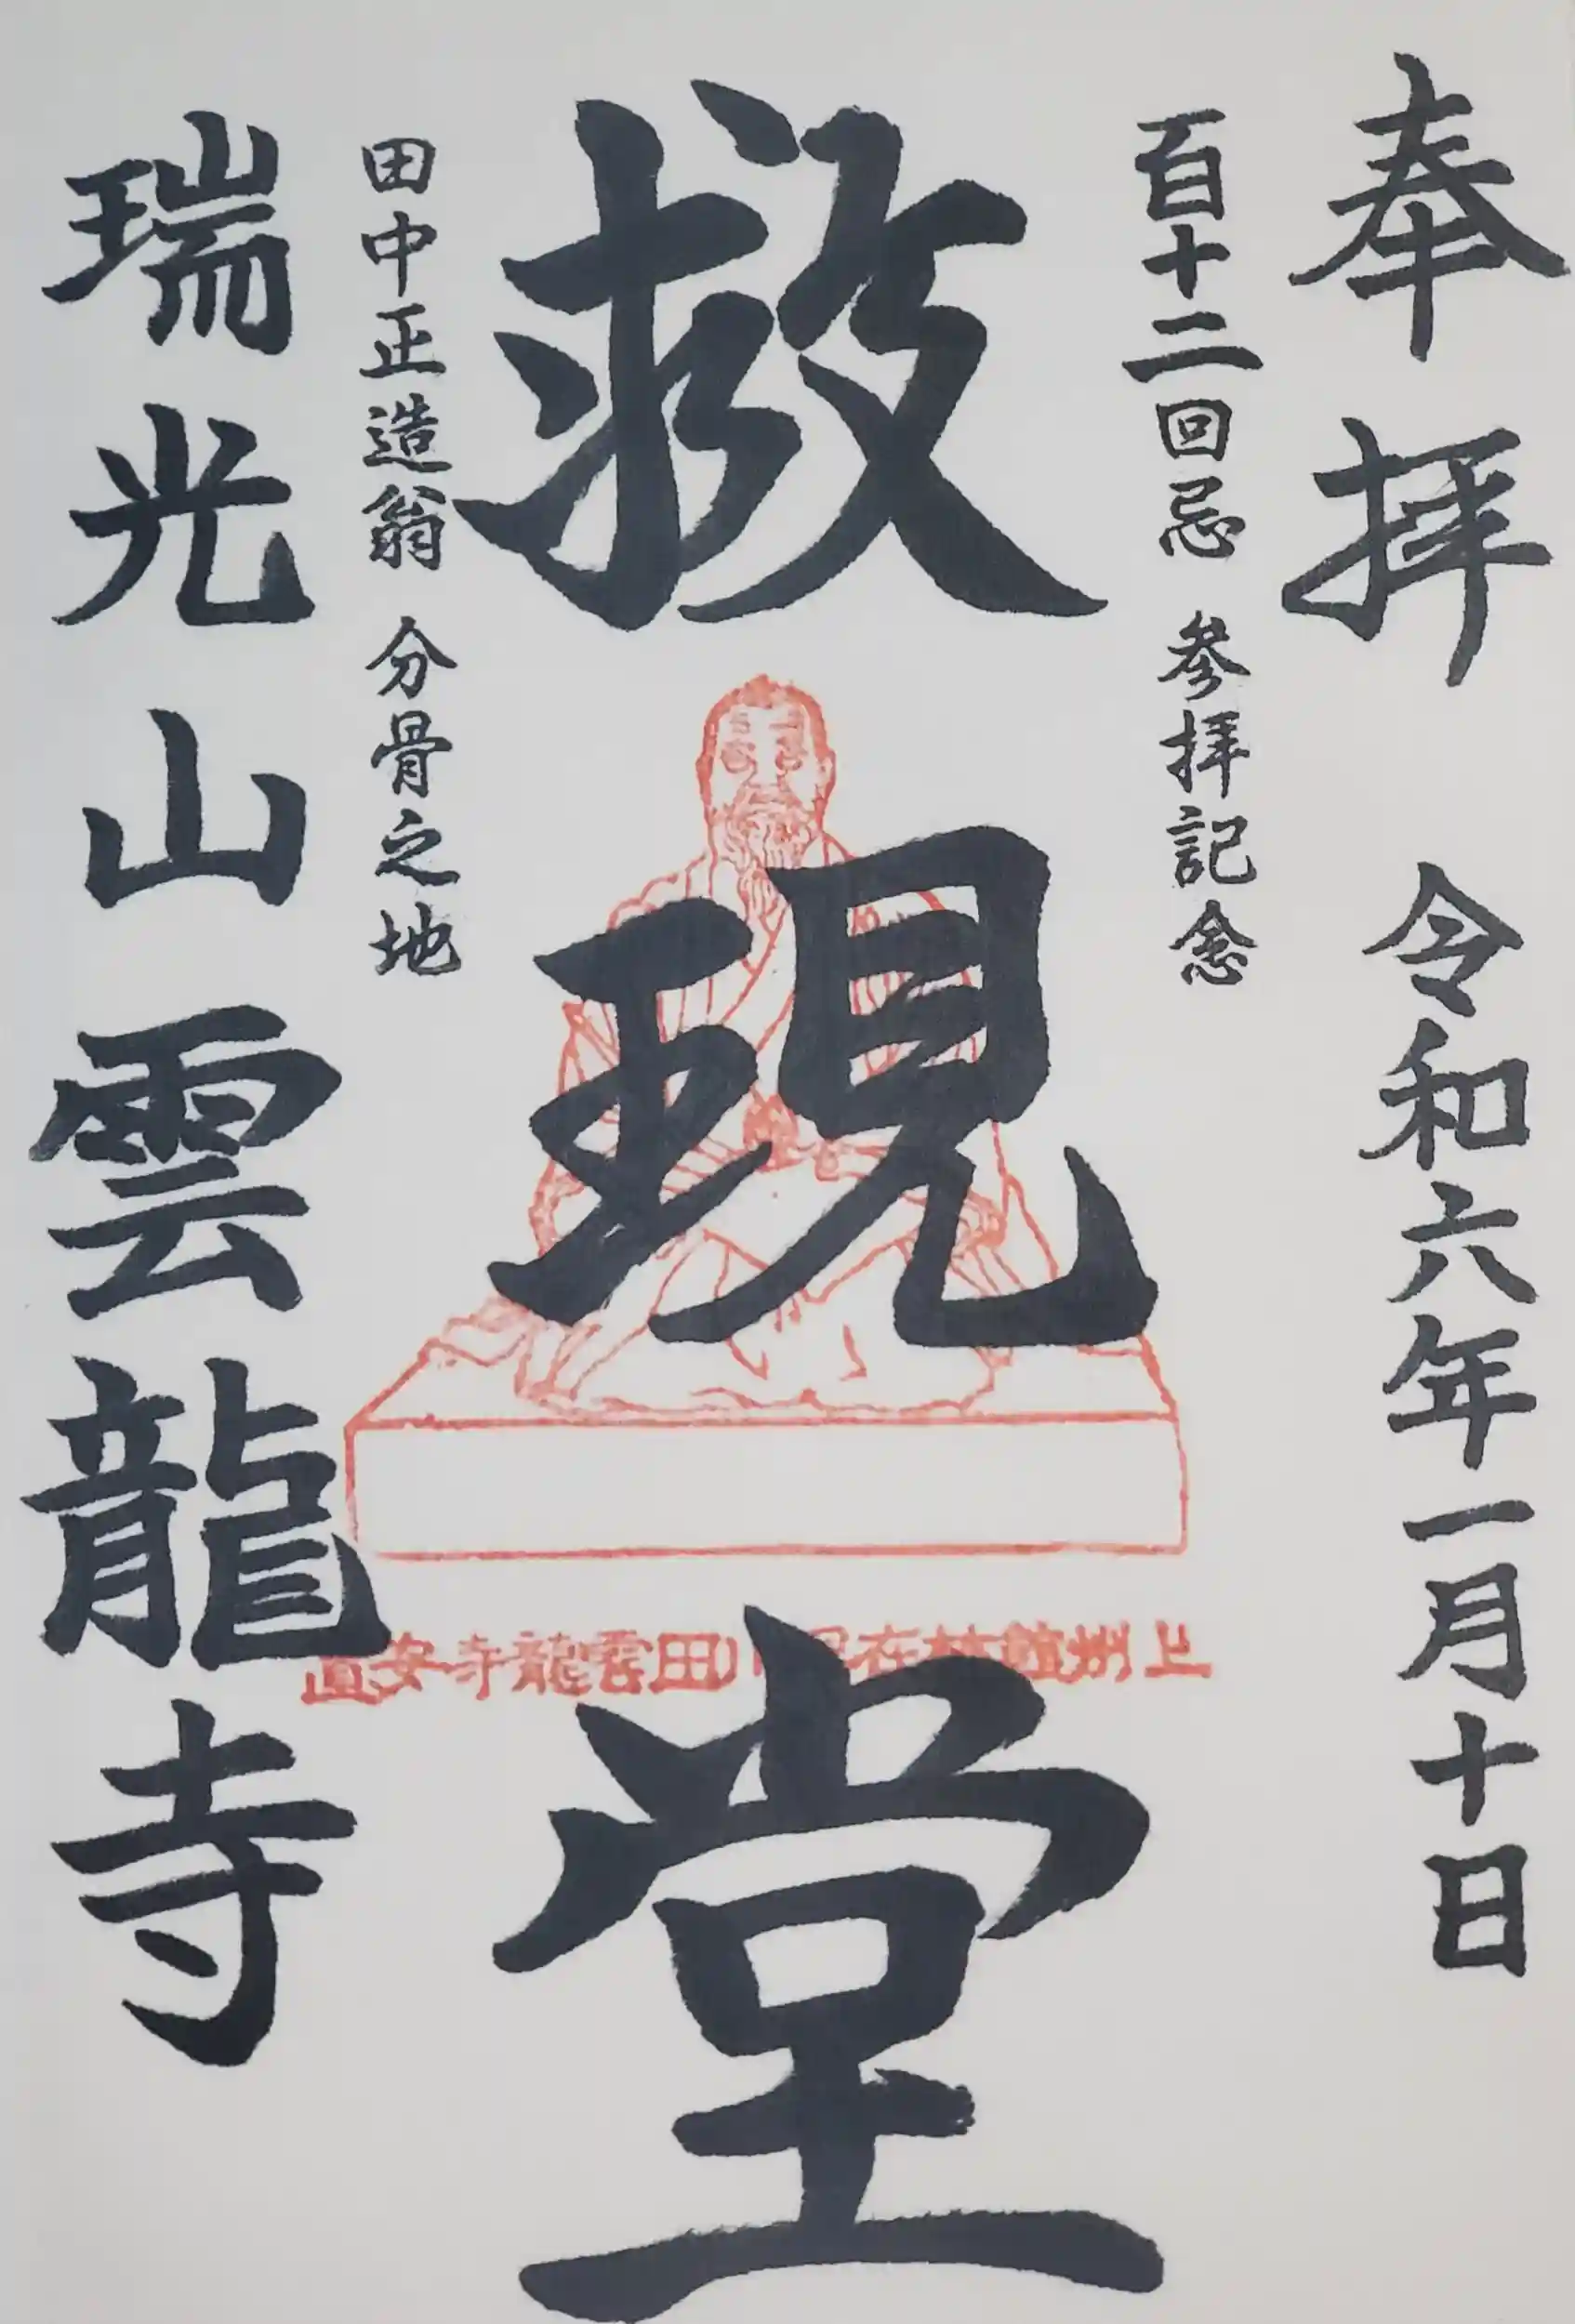 奉拝 令和六年一月十日
百十二回忌 参拝記念
救現堂
田中正造翁 分骨之地
瑞光山雲龍寺
上州館林在 田雲龍寺安置